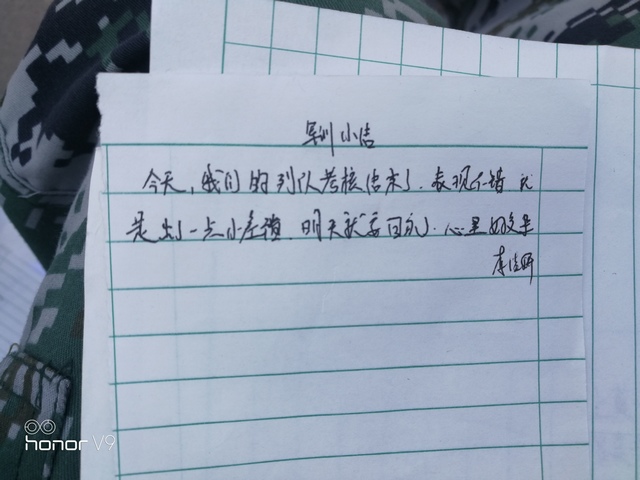 军训小结
今天,我们的列队考核结束了.表现不错 就
是出了一点小差错.明天就要回家了.心里好受
李佳
honor V9